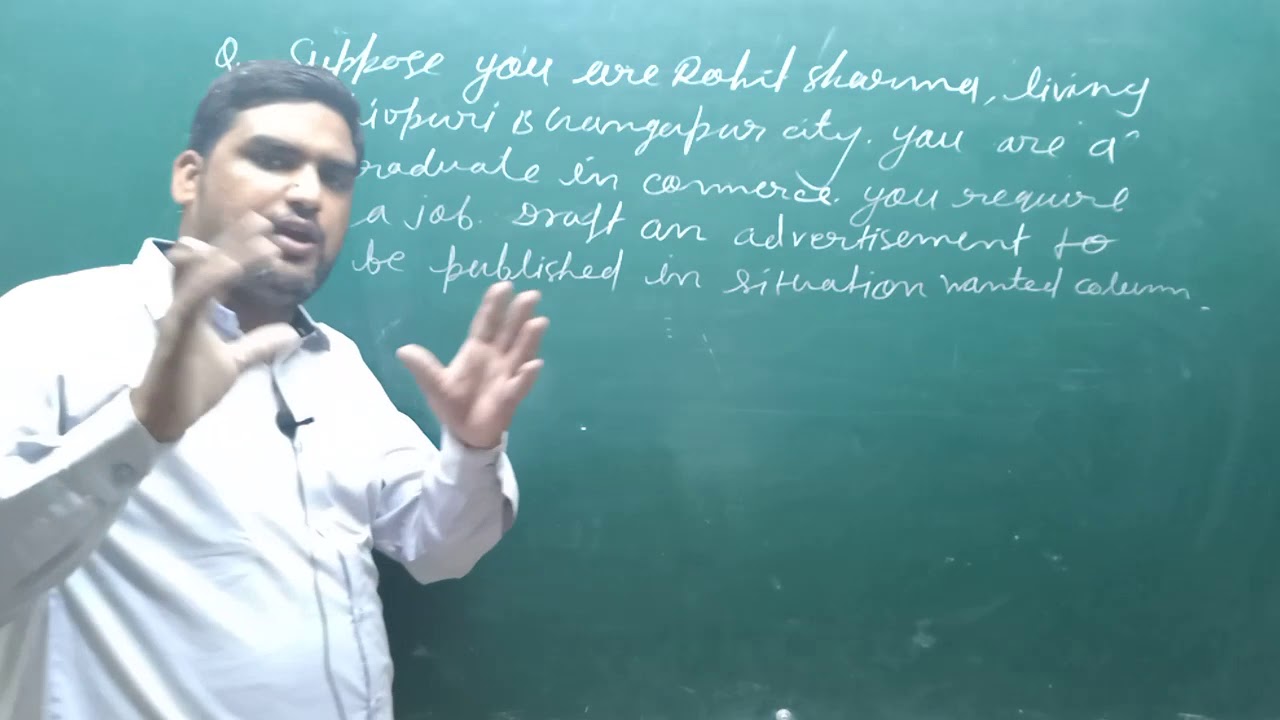 Q. Suppose you are Rohit Sharma, living
iopuri B Gangapur city. you are a
raduate in commerce. you require
a job. Draft an advertisement to
be published in situation wanted column.